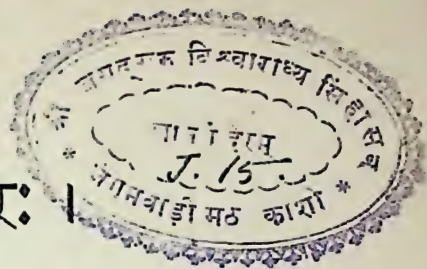 श्री जगद्गुरु विश्वाराध्य सिंहासन
J. 15
* जंगमवाड़ी मठ काशी *
रः ।